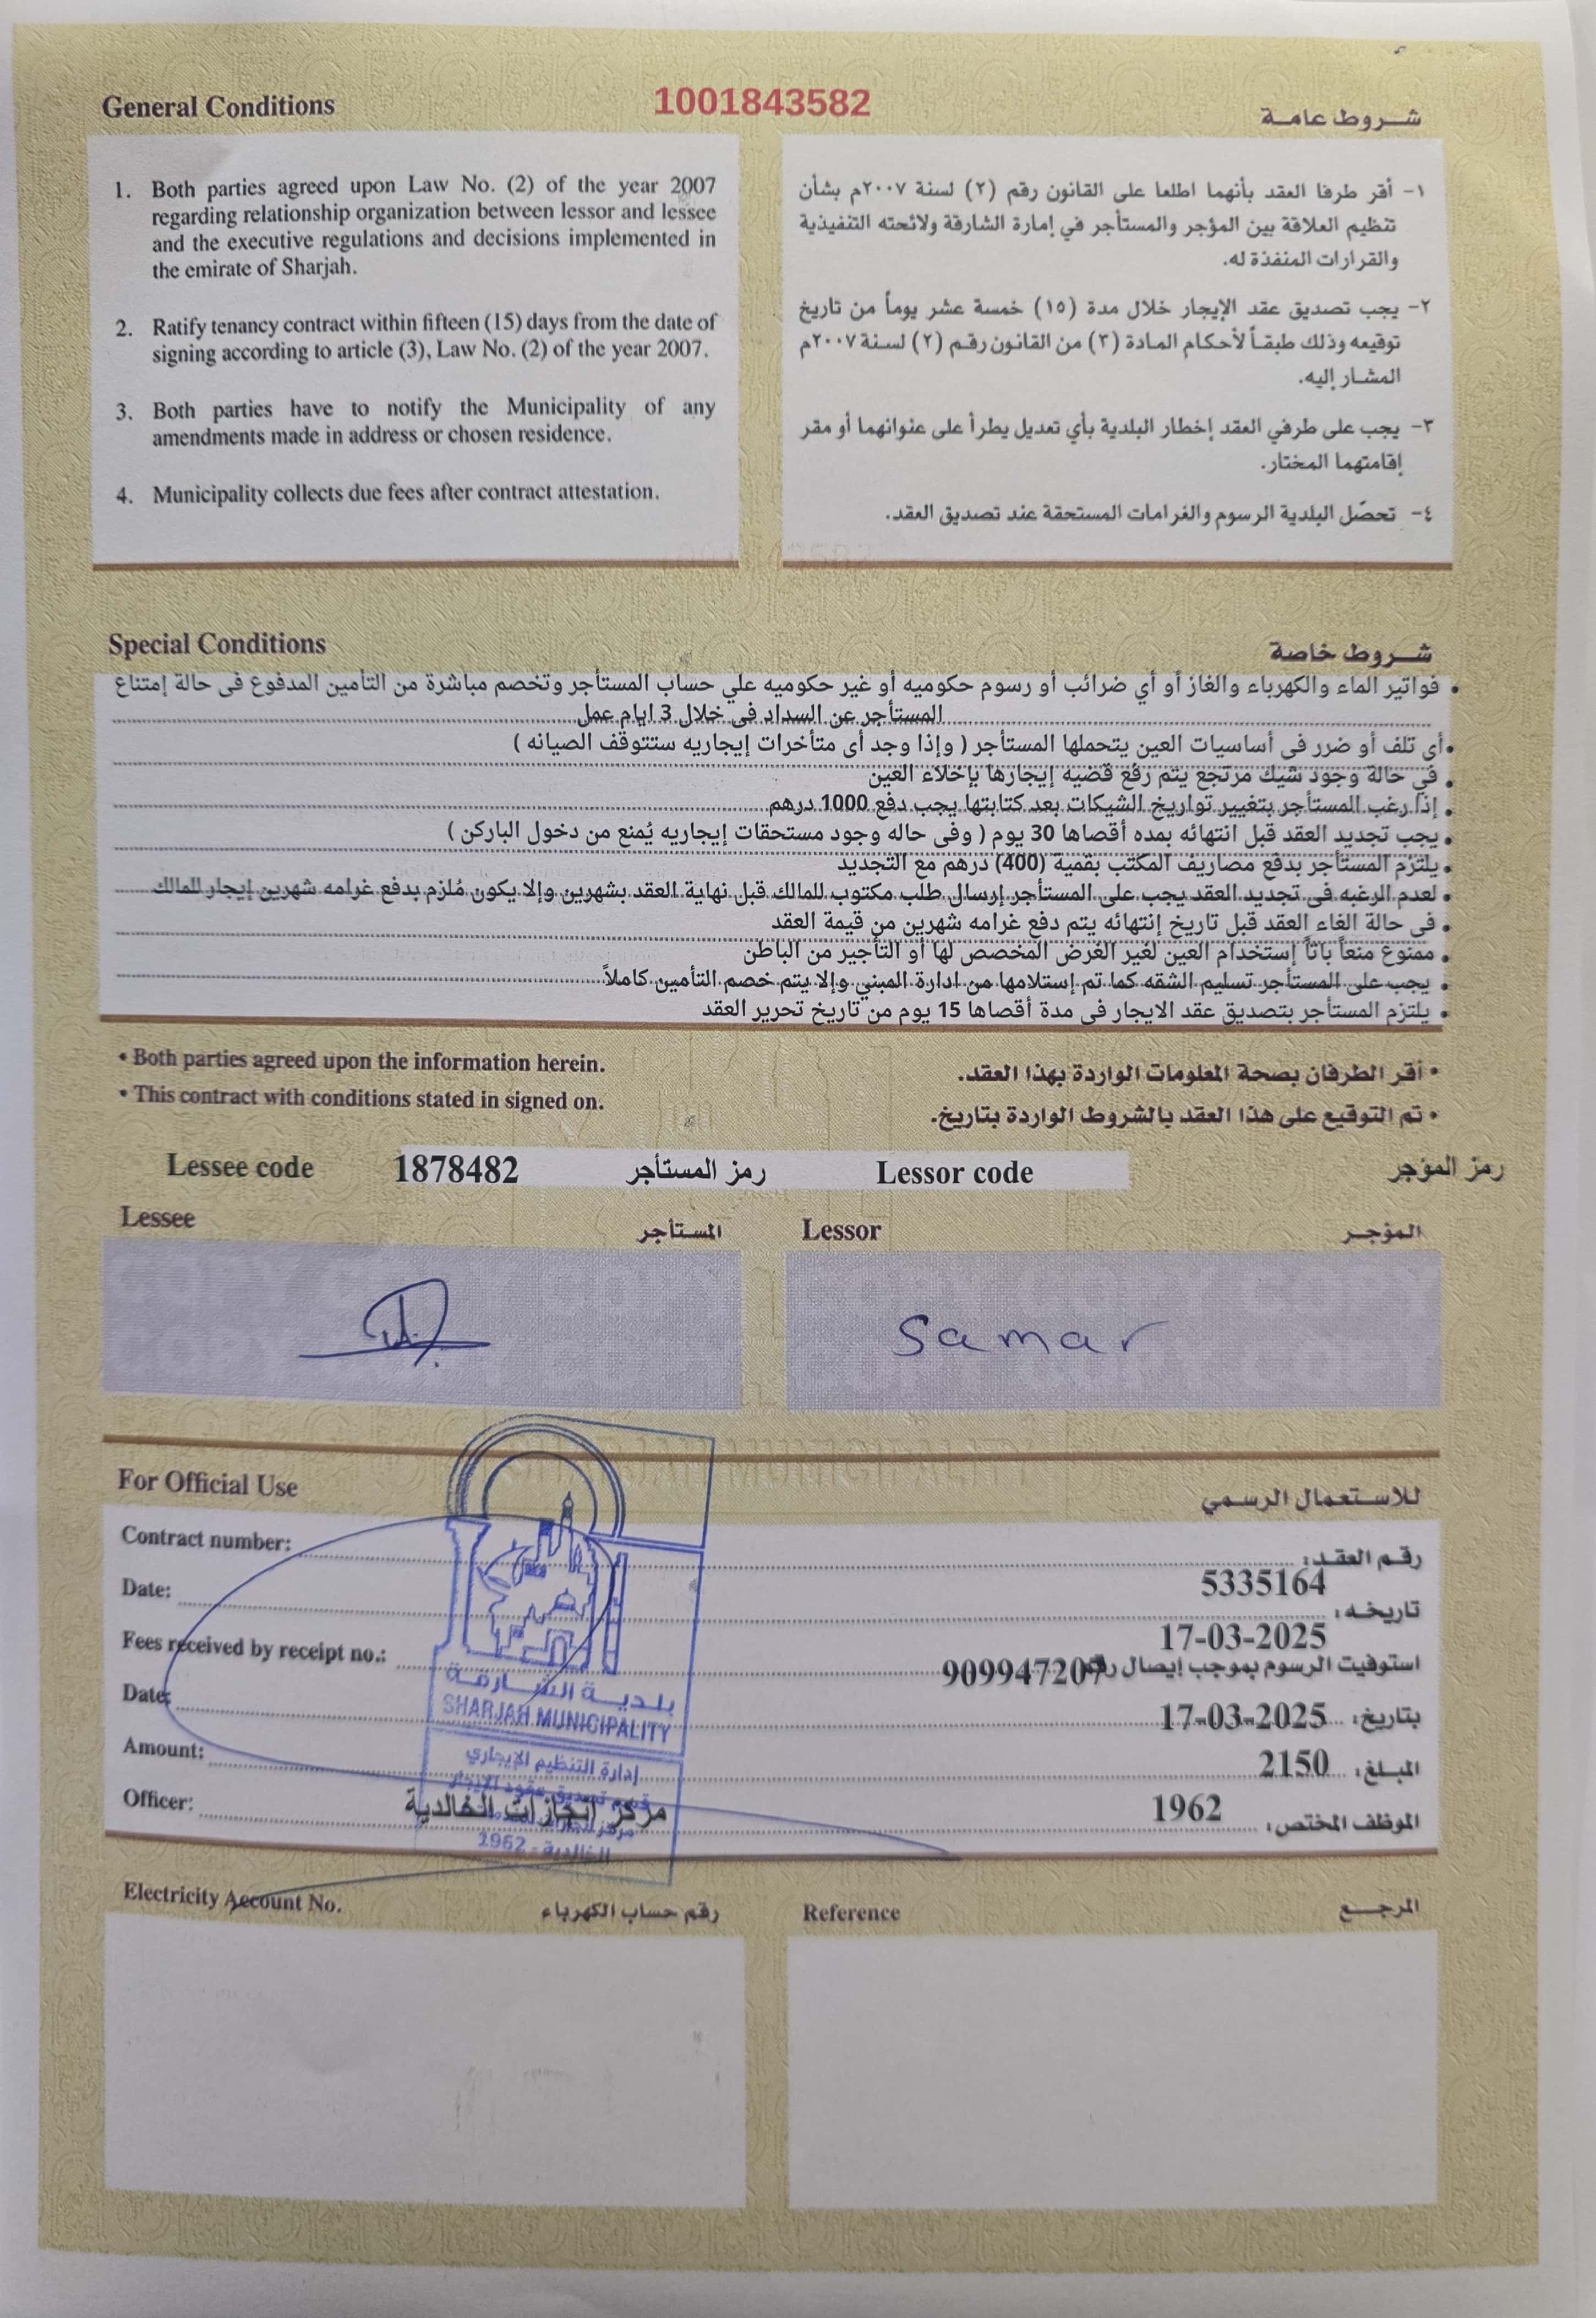 General Conditions
1001843582
شروط عامة
1. Both parties agreed upon Law No. (2) of the year 2007
regarding relationship organization between lessor and lessee
and the executive regulations and decisions implemented in
the emirate of Sharjah.
2. Ratify tenancy contract within fifteen (15) days from the date of
signing according to article (3), Law No. (2) of the year 2007.
3. Both parties have to notify the Municipality of any
amendments made in address or chosen residence.
4. Municipality collects due fees after contract attestation.
١- أقر طرفا العقد بأنهما اطلعا على القانون رقم (٢) لسنة ٢٠٠٧م بشأن
تنظيم العلاقة بين المؤجر والمستأجر في إمارة الشارقة ولائحته التنفيذية
والقرارات المنفذة له.
٢- يجب تصديق عقد الإيجار خلال مدة (١٥) خمسة عشر يوماً من تاريخ
توقيعه وذلك طبقاً لأحكام المادة (٣) من القانون رقم (٢) لسنة ٢٠٠٧م
المشار إليه.
٣- يجب على طرفي العقد إخطار البلدية بأي تعديل يطرأ على عنوانهما أو مقر
إقامتهما المختار.
٤- تحصّل البلدية الرسوم والغرامات المستحقة عند تصديق العقد.
Special Conditions
شروط خاصة
• فواتير الماء والكهرباء والغاز أو أي ضرائب أو رسوم حكوميه أو غير حكوميه علي حساب المستأجر وتخصم مباشرة من التأمين المدفوع فى حالة إمتناع
المستأجر عن السداد فى خلال 3 ايام عمل
• أي تلف أو ضرر فى أساسيات العين يتحملها المستأجر ( وإذا وجد أى متأخرات إيجاريه ستتوقف الصيانه )
• في حالة وجود شيك مرتجع يتم رفع قضيه إيجارها بإخلاء العين
• إذا رغب المستأجر بتغيير تواريخ الشيكات بعد كتابتها يجب دفع 1000 درهم
• يجب تجديد العقد قبل انتهائه بمده أقصاها 30 يوم ( وفى حاله وجود مستحقات إيجاريه يُمنع من دخول الباركن )
• يلتزم المستأجر بدفع مصاريف المكتب بقمية (400) درهم مع التجديد
• لعدم الرغبه فى تجديد العقد يجب على المستأجر إرسال طلب مكتوب للمالك قبل نهاية العقد بشهرين وإلا يكون مُلزم بدفع غرامه شهرين إيجار للمالك
• فى حالة الغاء العقد قبل تاريخ إنتهائه يتم دفع غرامه شهرين من قيمة العقد
• ممنوع منعاً باتاً إستخدام العين لغير الغرض المخصص لها أو التأجير من الباطن
• يجب على المستأجر تسليم الشقه كما تم إستلامها من ادارة المبني وإلا يتم خصم التأمين كاملاً
• يلتزم المستأجر بتصديق عقد الايجار فى مدة أقصاها 15 يوم من تاريخ تحرير العقد
• Both parties agreed upon the information herein.
• This contract with conditions stated in signed on.
• أقر الطرفان بصحة المعلومات الواردة بهذا العقد.
• تم التوقيع على هذا العقد بالشروط الواردة بتاريخ.
Lessee code 1878482 رمز المستأجر Lessor code رمز المؤجر
Lessee المستأجر Lessor المؤجر
Samar
For Official Use
للاستعمال الرسمي
Contract number: رقم العقد:
5335164
Date: تاريخه:
17-03-2025
Fees received by receipt no.: استوفيت الرسوم بموجب إيصال رقم
909947207
Date: 17-03-2025 بتاريخ:
Amount: 2150 المبلغ:
Officer: مركز انجازات الخالدية 1962 الموظف المختص:
بلدية الشارقة
SHARJAH MUNICIPALITY
إدارة التنظيم الإيجاري
قسم تصديق عقود الايجار
الخالدية - 1962
Electricity Account No. رقم حساب الكهرباء Reference المرجع